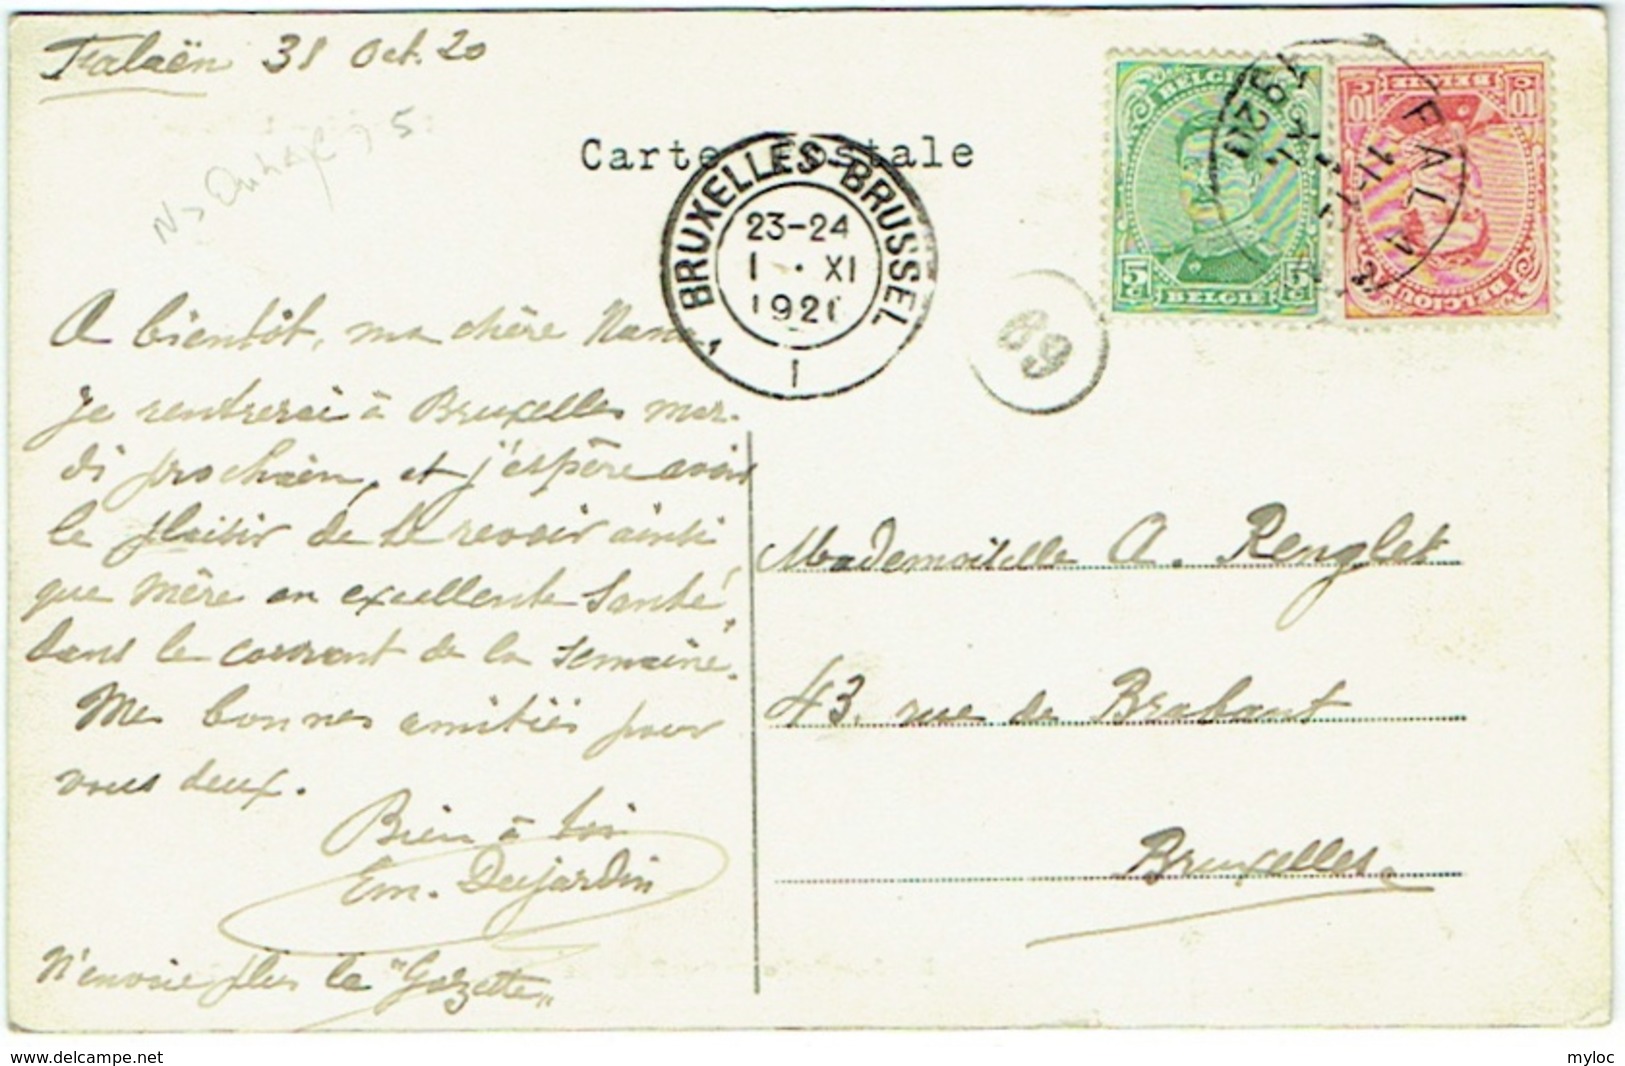 Falaën 31 Oct. 20
Carte Postale
BRUXELLES-BRUSSEL
23-24
1 · XI
1920
1
69
BELGIQUE
5c 5c
BELGIË
10c 10c
BELGIE
BELGIQUE
FALAËN
A bientôt, ma chère Nana,
Je rentrerai à Bruxelles mar-
di prochain, et j'espère avoir
le plaisir de te revoir ainsi
que Mère en excellente santé,
dans le courant de la semaine.
Mes bonnes amitiés pour
vous deux.
Bien à toi
Em. Desjardin
N'envoie plus la "Gazette"
Mademoiselle A. Renglet
43, rue de Brabant
Bruxelles
www.delcampe.net
myloc